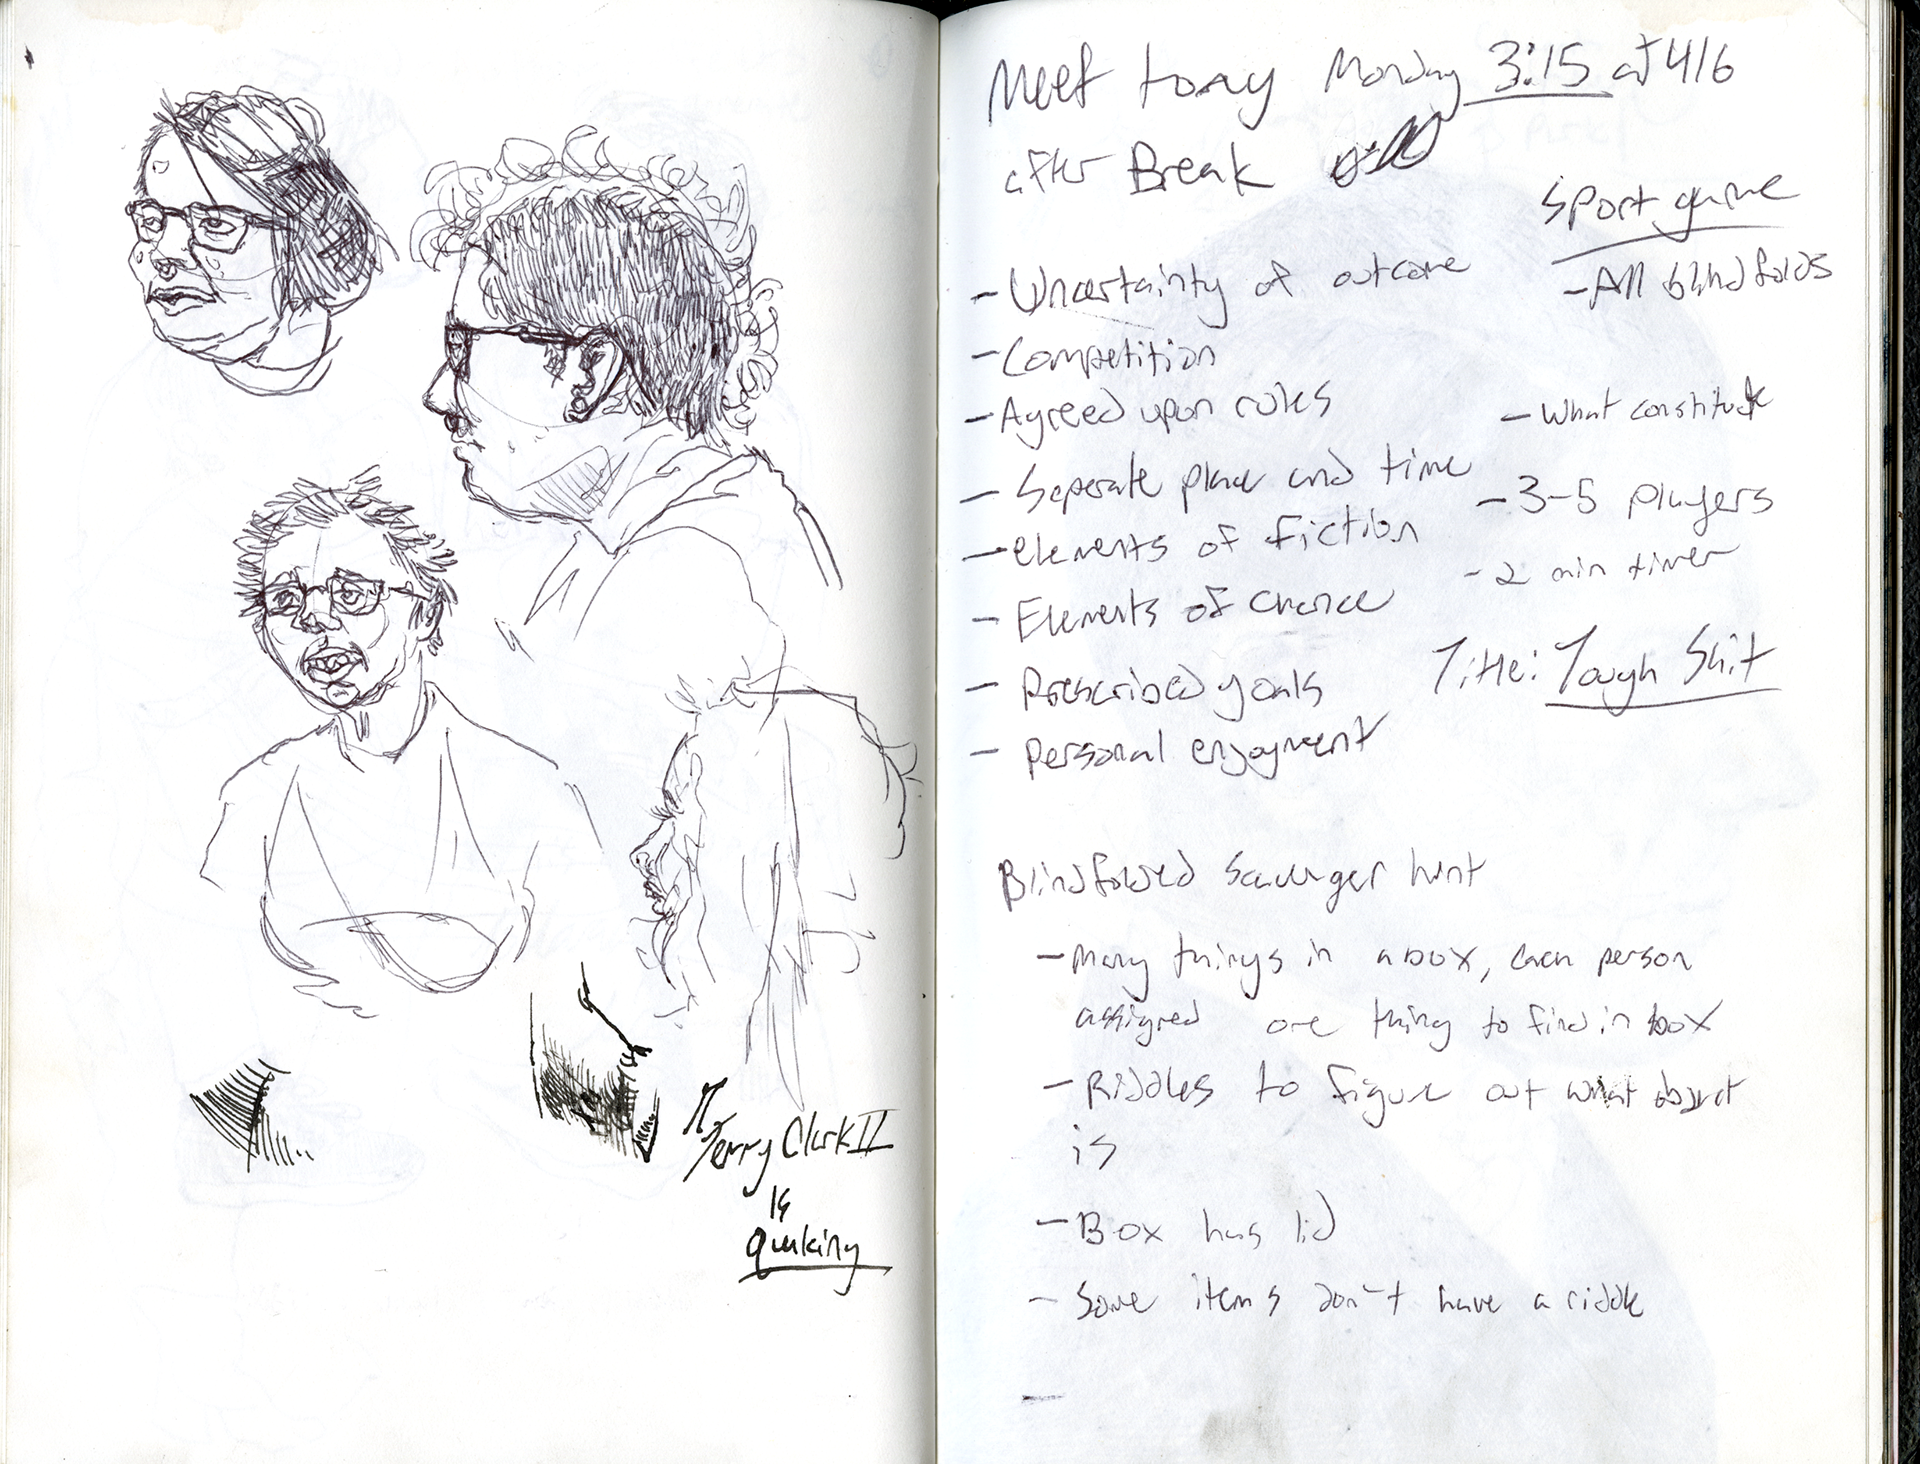 Terry Clark II
is
quaking
Meet tony Monday 3:15 at 416
after Break
Sport game
- All blindfolds
- Uncertainty of outcome
- Competition
- Agreed upon rules
- What constitute
- Seperate place and time
- 3-5 players
- elements of fiction
- 2 min timer
- Elements of chance
Title: Tough Shit
- Prescribed goals
- Personal enjoyment
Blindfolded Scavenger hunt
- Many things in a box, each person
assigned one thing to find in box
- Riddles to figure out what object
is
- Box has lid
- Some items don't have a riddle
-